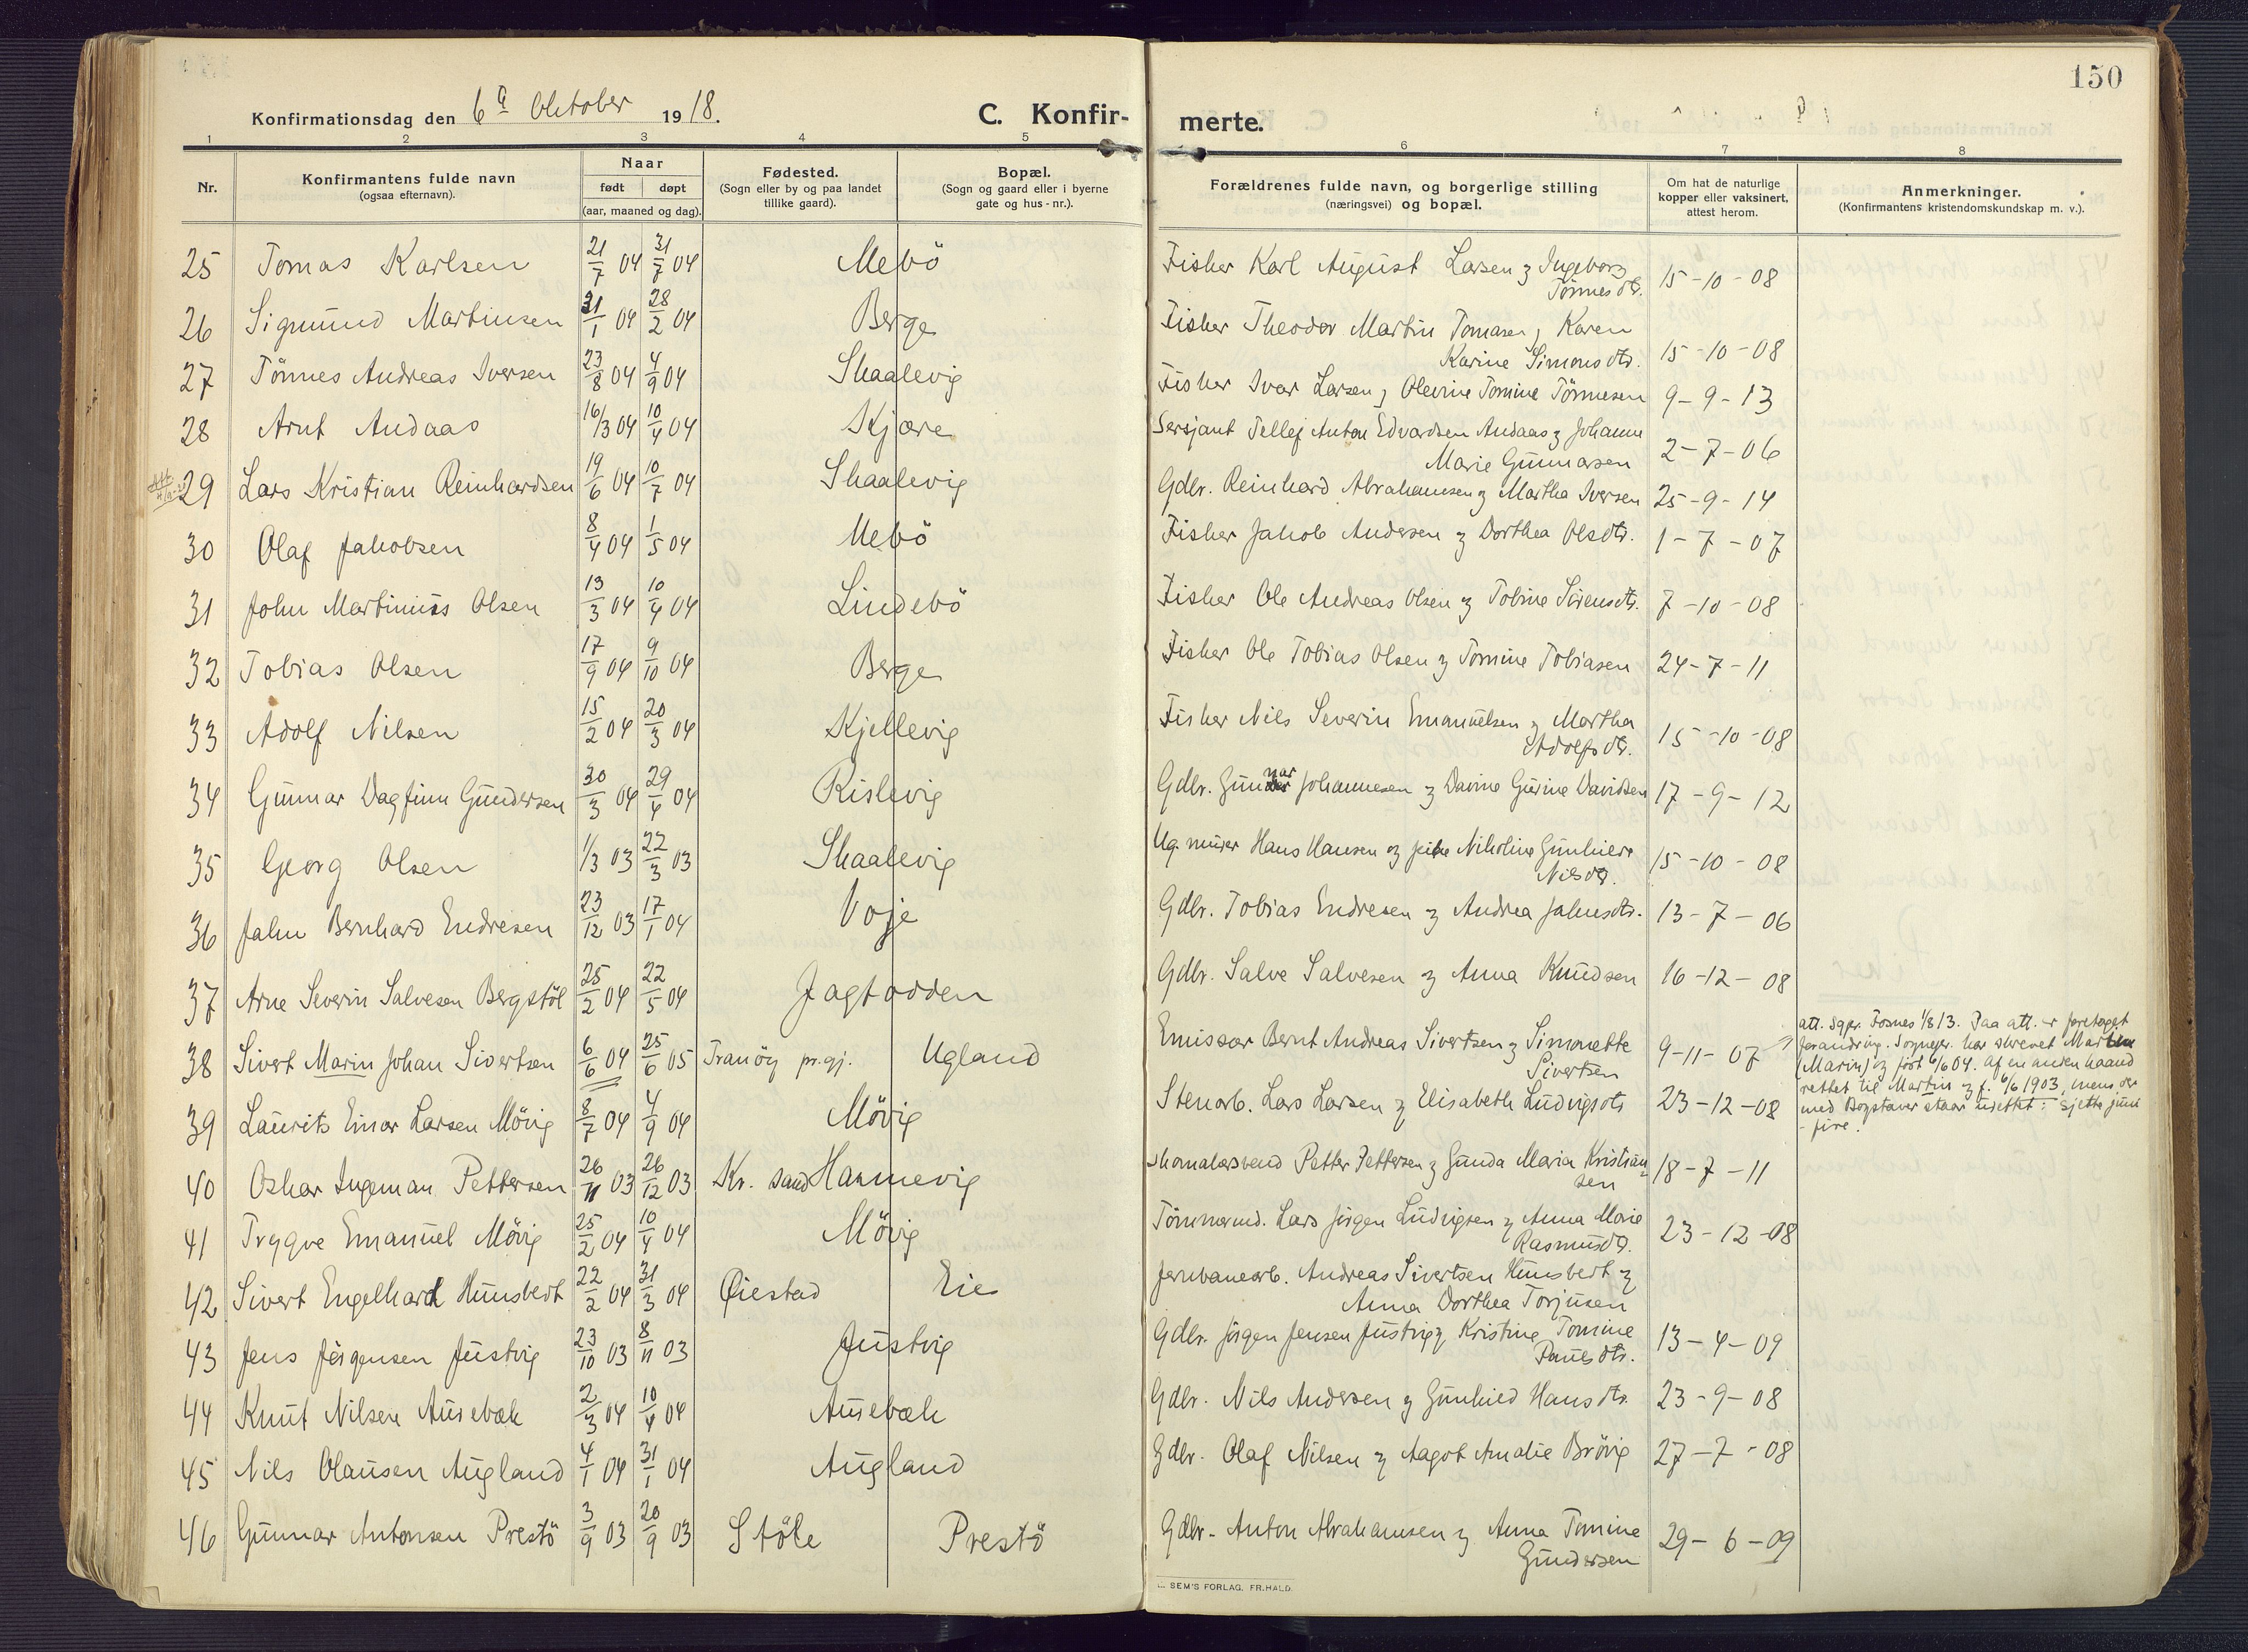 150
Konfirmationsdag den 6te Oktober 1918.
C. Konfir-
merte.
1 2 3 4 5 6 7 8
Nr.
Konfirmantens fulde navn
(ogsaa efternavn).
Naar
født døpt
(aar, maaned og dag).
Fødested.
(Sogn eller by og paa landet
tillike gaard).
Bopæl.
(Sogn og gaard eller i byerne
gate og hus-nr.).
Forældrenes fulde navn, og borgerlige stilling
(næringsvei) og bopæl.
Om hat de naturlige
kopper eller vaksinert,
attest herom.
Anmerkninger.
(Konfirmantens kristendomskundskap m. v.).
25 Tomas Karlsen 21/7 04 31/7 04 Mebö Fisker Karl August Larsen og Ingeborg
Tönnesdtr. 15-10-08
26 Sigmund Martinsen 31/1 04 28/2 04 Berge Fisker Theodor Martin Tomasen, Karen
Karine Simonsdtr. 15-10-08
27 Tönnes Andreas Iversen 23/8 04 4/9 04 Skaalevig Fisker Ivar Larsen, Olevine Tomine Tönnesen 9-9-13
28 Arnt Andaas 16/3 04 10/4 04 Kjære Sersjant Tellef Anton Edvardsen Andaas og Johanne
Marie Gunnarsen 2-7-06
29 Lars Kristian Reinhardsen 19/6 04 10/7 04 Skaalevig Gdbr. Reinhard Abrahamsen og Martha Iversen 25-9-14
30 Olaf Jakobsen 8/4 04 1/5 04 Mebö Fisker Jakob Andersen og Dorthea Olsdtr. 1-7-07
31 John Martinius Olsen 13/3 04 10/4 04 Lindebö Fisker Ole Andreas Olsen og Tobine Sörensdtr. 7-10-08
32 Tobias Olsen 17/9 04 9/10 04 Berge Fisker Ole Tobias Olsen og Tomine Tobiasen 24-7-11
33 Adolf Nilsen 15/2 04 20/3 04 Kjellevig Fisker Nils Severin Emanuelsen og Martha
Adolfsdtr. 15-10-08
34 Gunnar Dagfinn Gundersen 30/3 04 29/4 04 Rislevig Gdbr. Gunnar Johannesen og Davine Gurine Davidsen 17-9-12
35 Georg Olsen 1/3 03 22/3 03 Skaalevig Ug. murer Hans Hansen og pike Nikoline Gunhild
Nilsdtr. 15-10-08
36 Jahn Bernhard Endresen 23/12 03 17/1 04 Voje Gdbr. Tobias Endresen og Andrea Jahnsdtr. 13-7-06
37 Arne Severin Salvesen Bergstöl 25/2 04 22/5 04 Jagtodden Gdbr. Salve Salvesen og Anna Knudsen 16-12-08
38 Sivert Marin Johan Sivertsen 6/6 04 25/6 05 Tranöy pr.gj. Ugland Emissær Bernt Andreas Sivertsen og Simonette
Sivertsen 9-11-07
att. Sgpr. Fosnes 1/8 13. Paa att. er foretaget
forandring. Sognepr. har skrevet Martin
(Marin) og født 6/6 04. Af en anden haand
rettet til Martin og f. 6/6 1903, mens der
med Bogstaver staar urettet: sjette juni
- fire.
39 Laurits Einar Larsen Mövig 8/7 04 4/9 04 Mövig Stenarb. Lars Larsen og Elisabeth Ludvigsdtr 23-12-08
40 Oskar Ingeman Pettersen 26/11 03 26/12 03 Kr. sand Hannevig Skomakersvend Petter Pettersen og Gunda Maria Kristian-
sen 18-7-11
41 Trygve Emanuel Mövig 25/2 04 10/4 04 Mövig Tömmermd. Lars Jörgen Ludvigsen og Anna Marie
Rasmusdtr. 23-12-08
42 Sivert Engelhard Hunsbedt 22/2 04 31/3 04 Øiestad Eie Jernbanearb. Andreas Sivertsen Hunsbedt og
Anna Dorthea Torjusen
43 Jens Jörgensen Justvig 23/10 03 8/11 03 Justvig Gdbr. Jörgen Jensen Justvig og Kristine Tomine
Paulsdtr. 13-4-09
44 Knut Nilsen Auebæk 2/3 04 10/4 04 Auebæk Gdbr. Nils Andersen og Gunhild Hansdtr. 23-9-08
45 Nils Olausen Augland 4/1 04 31/1 04 Augland Gdbr. Olaf Nilsen og Aagot Amalie Brövig 27-7-08
46 Gunnar Antonsen Prestö 3/9 03 20/9 03 Støle Prestö Gdbr. Anton Abrahamsen og Anna Tomine
Gundersen 29-6-09
SEM'S FORLAG, FR.HALD.